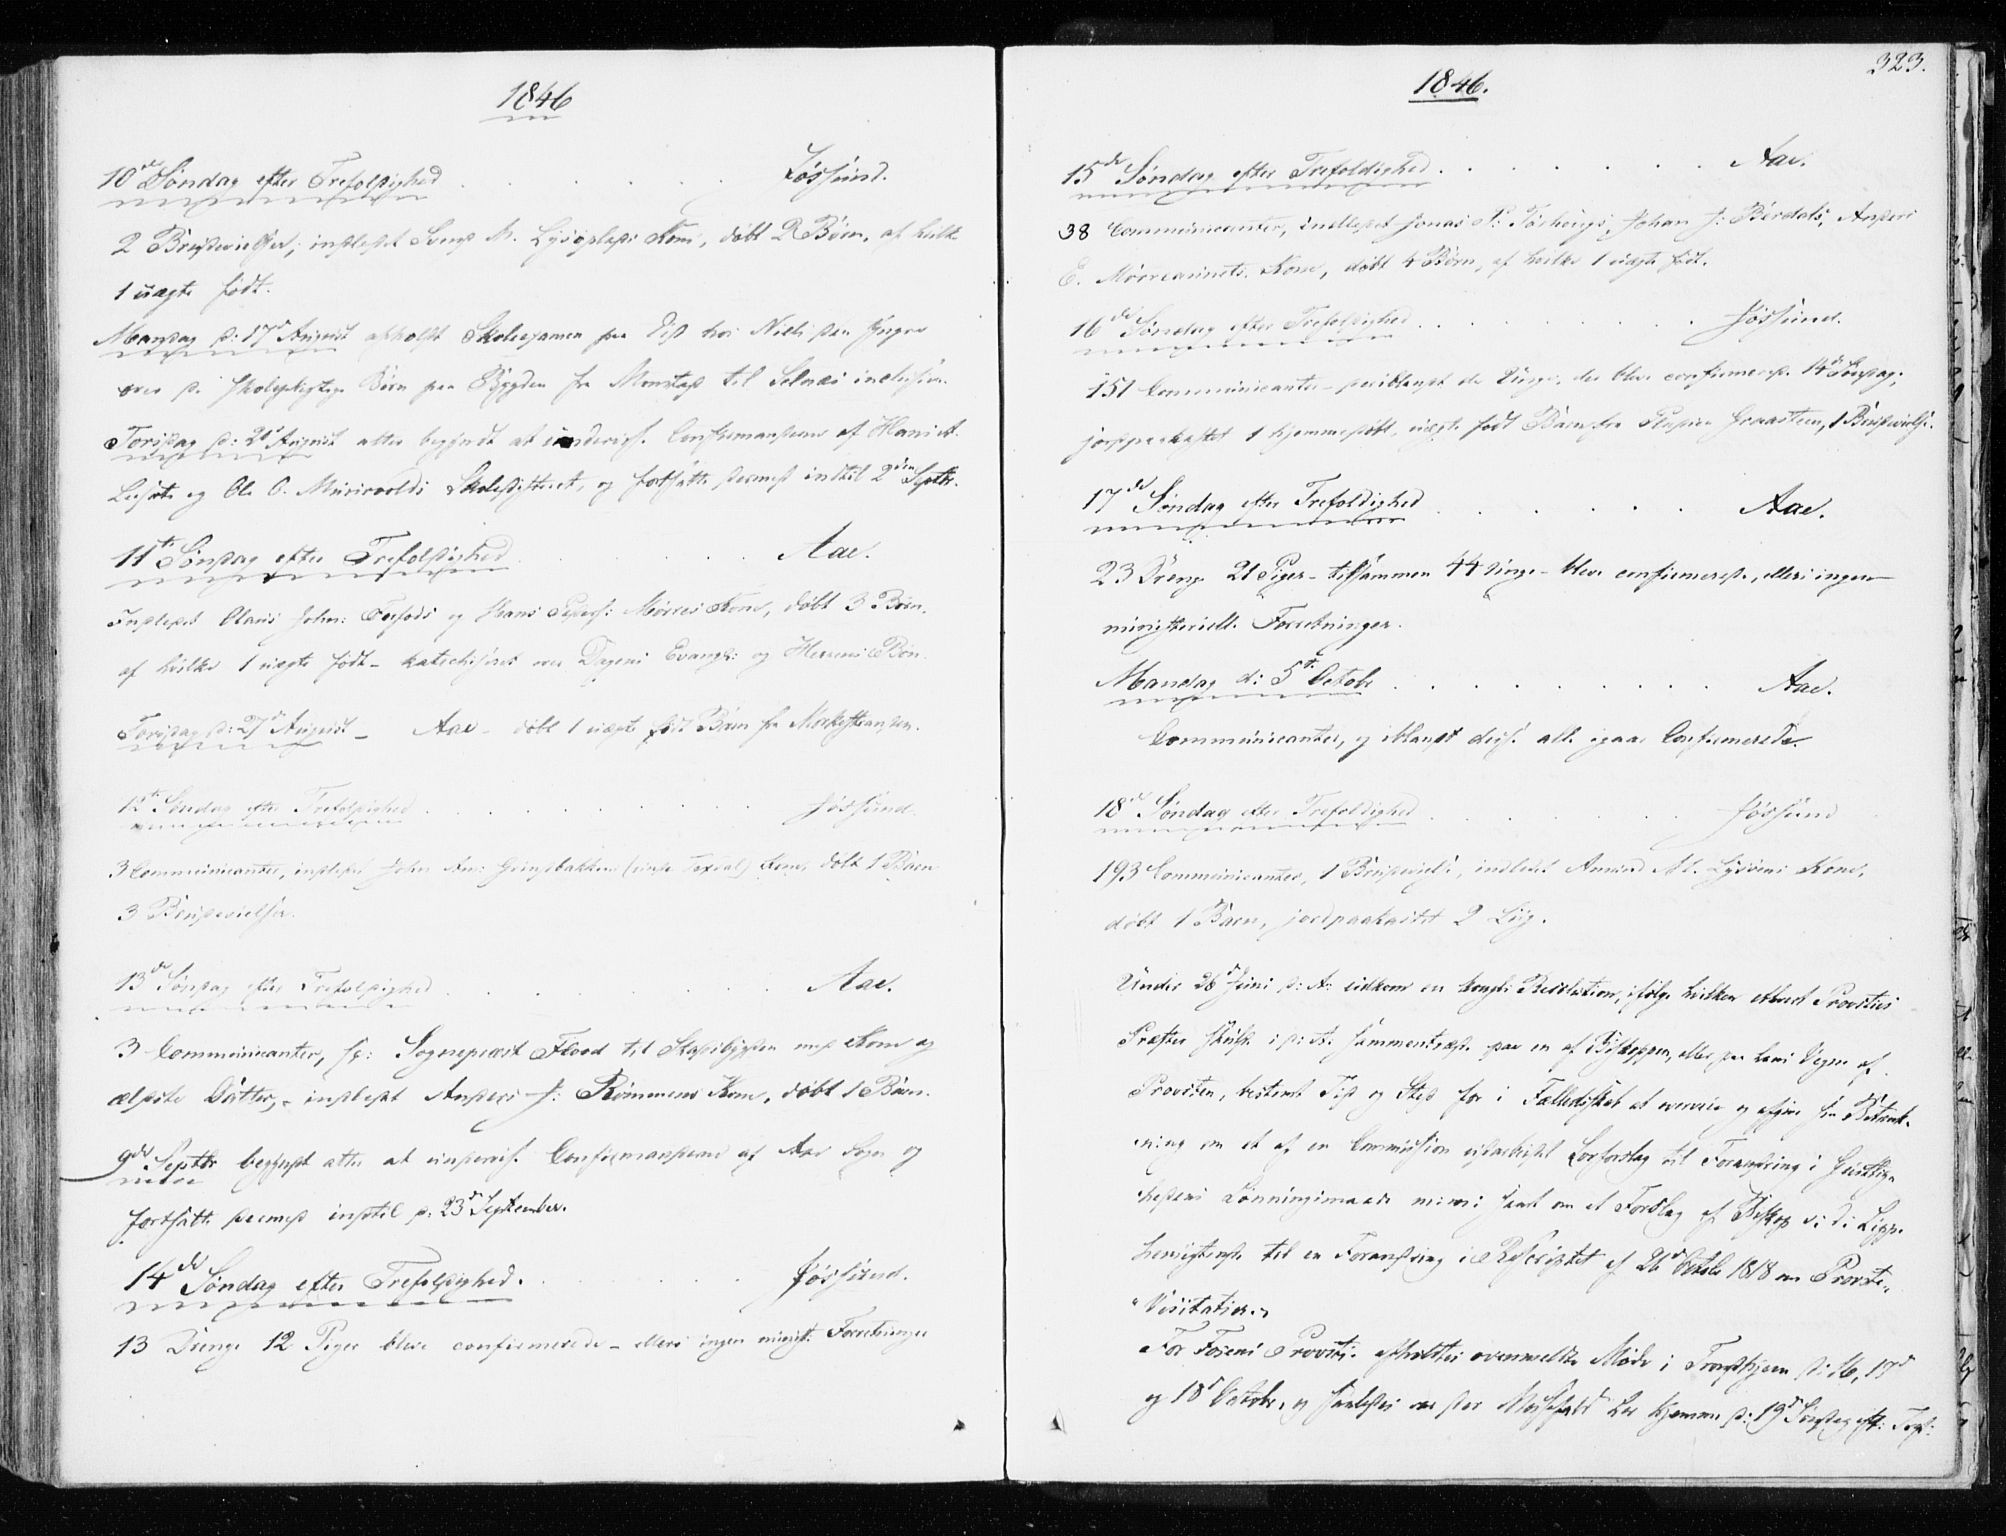 1846
10de Søndag efter Trefoldighed . . . . . . . Jøssund.
2 Brudevielser, indledet M. Lysøplads Kone, døbt 2 Børn, af hvilke
1 uægte født.
Mandag d: 17de August afholdt Skoleexamen paa hos Niels
over de skolepligtige Børn paa Bygden fra Monstad til Selnæs inclusive.
Torsdag d: 20de August atter begyndt at underviise Confirmanderne af
og Ole O. Skoledistrict, og fortsatte dermed indtil 2den Septbr.
11te Søndag efter Trefoldighed . . . . . . Aae.
Indledet Olaus John: og Hans Peders: Mørres Kone, døbt 3 Børn,
af hvilke 1 uægte født – katechiseret over Dagens Evangl: og Herrens Bøn.
Torsdag d: 27de August – Aae – døbt 1 uægte født Barn fra
12te Søndag efter Trefoldighed . . . . . . . Jøssund.
3 Communicanter, indledet John And: Grindbakken Kone, døbt 1 Barn
3 Brudevielser.
13de Søndag efter Trefoldighed . . . . . . . Aae.
3 Communicanter, Sognepræst Flood til Stadsbygden med Kone og
ældste Datter, – indledet Anders J: Rømmens Kone, døbt 1 Barn.
9de Septbr begyndt atter at underviise Confirmanderne af Aae Sogn og
fortsatte dermed indtil d: 23de September.
14de Søndag efter Trefoldighed. . . . . . . Jøssund.
13 Drenge 12 Piger bleve confirmerede – ellers ingen minist: Forretninger
323.
1846.
15de Søndag efter Trefoldighed . . . . . . . Aae.
38 Communicanter, indledet Jonas P: Johan J: Berdals, Anders
E. Kone, døbt 4 Børn, af hvilke 1 uægte født.
16de Søndag efter Trefoldighed . . . . . . . Jøssund.
151 Communicanter – deriblandt de Unge, der bleve confirmerede 14de Søndag,
jordpaakastet 1 hjemmedøbt, uægte født Barn fra Pladsen Graasteen, 1 Brudevielse.
17de Søndag efter Trefoldighed . . . . . . Aae.
23 Drenge 21 Piger – tilsammen 44 Unge – bleve confirmerede, ellers ingen
ministerielle Forretninger.
Mandag d: 5te Octobr . . . . . . . . . Aae.
Communicanter, og iblandt disse alle igaar Confirmerede.
18de Søndag efter Trefoldighed . . . . . . . Jøssund
193 Communicanter, 1 Brudevielse, indledet Amund M. Lysøens Kone,
døbt 1 Barn, jordpaakastet 2 Liig.
Under 26de Juni d: A: udkom en kongl: Resolution, ifølge hvilken ethvert Provsties
Præster skulde i d: A: sammentræde paa en af Biskoppen, eller paa hans Vegne af
Provsten, bestemt Tid og Sted for i Fællesskab at overveie og afgive sin Betænk-
ning om et af en Commission udarbeidet Lovforslag til Forandring i Geistlig-
hedens Lønningsmaade m: m: samt om et Forslag af Biskop
henvigtende til en Forandring i Rescriptet af 26de Octobr 1818 om Provste-
"Visitatser."
For Fosens Provsti afholdtes ovenmeldte Møde i Trondhjem d: 16, 17de
og 18de Octobr, og saaledes var der Messefald her hjemme d: 19de Søndag eft: Tref: